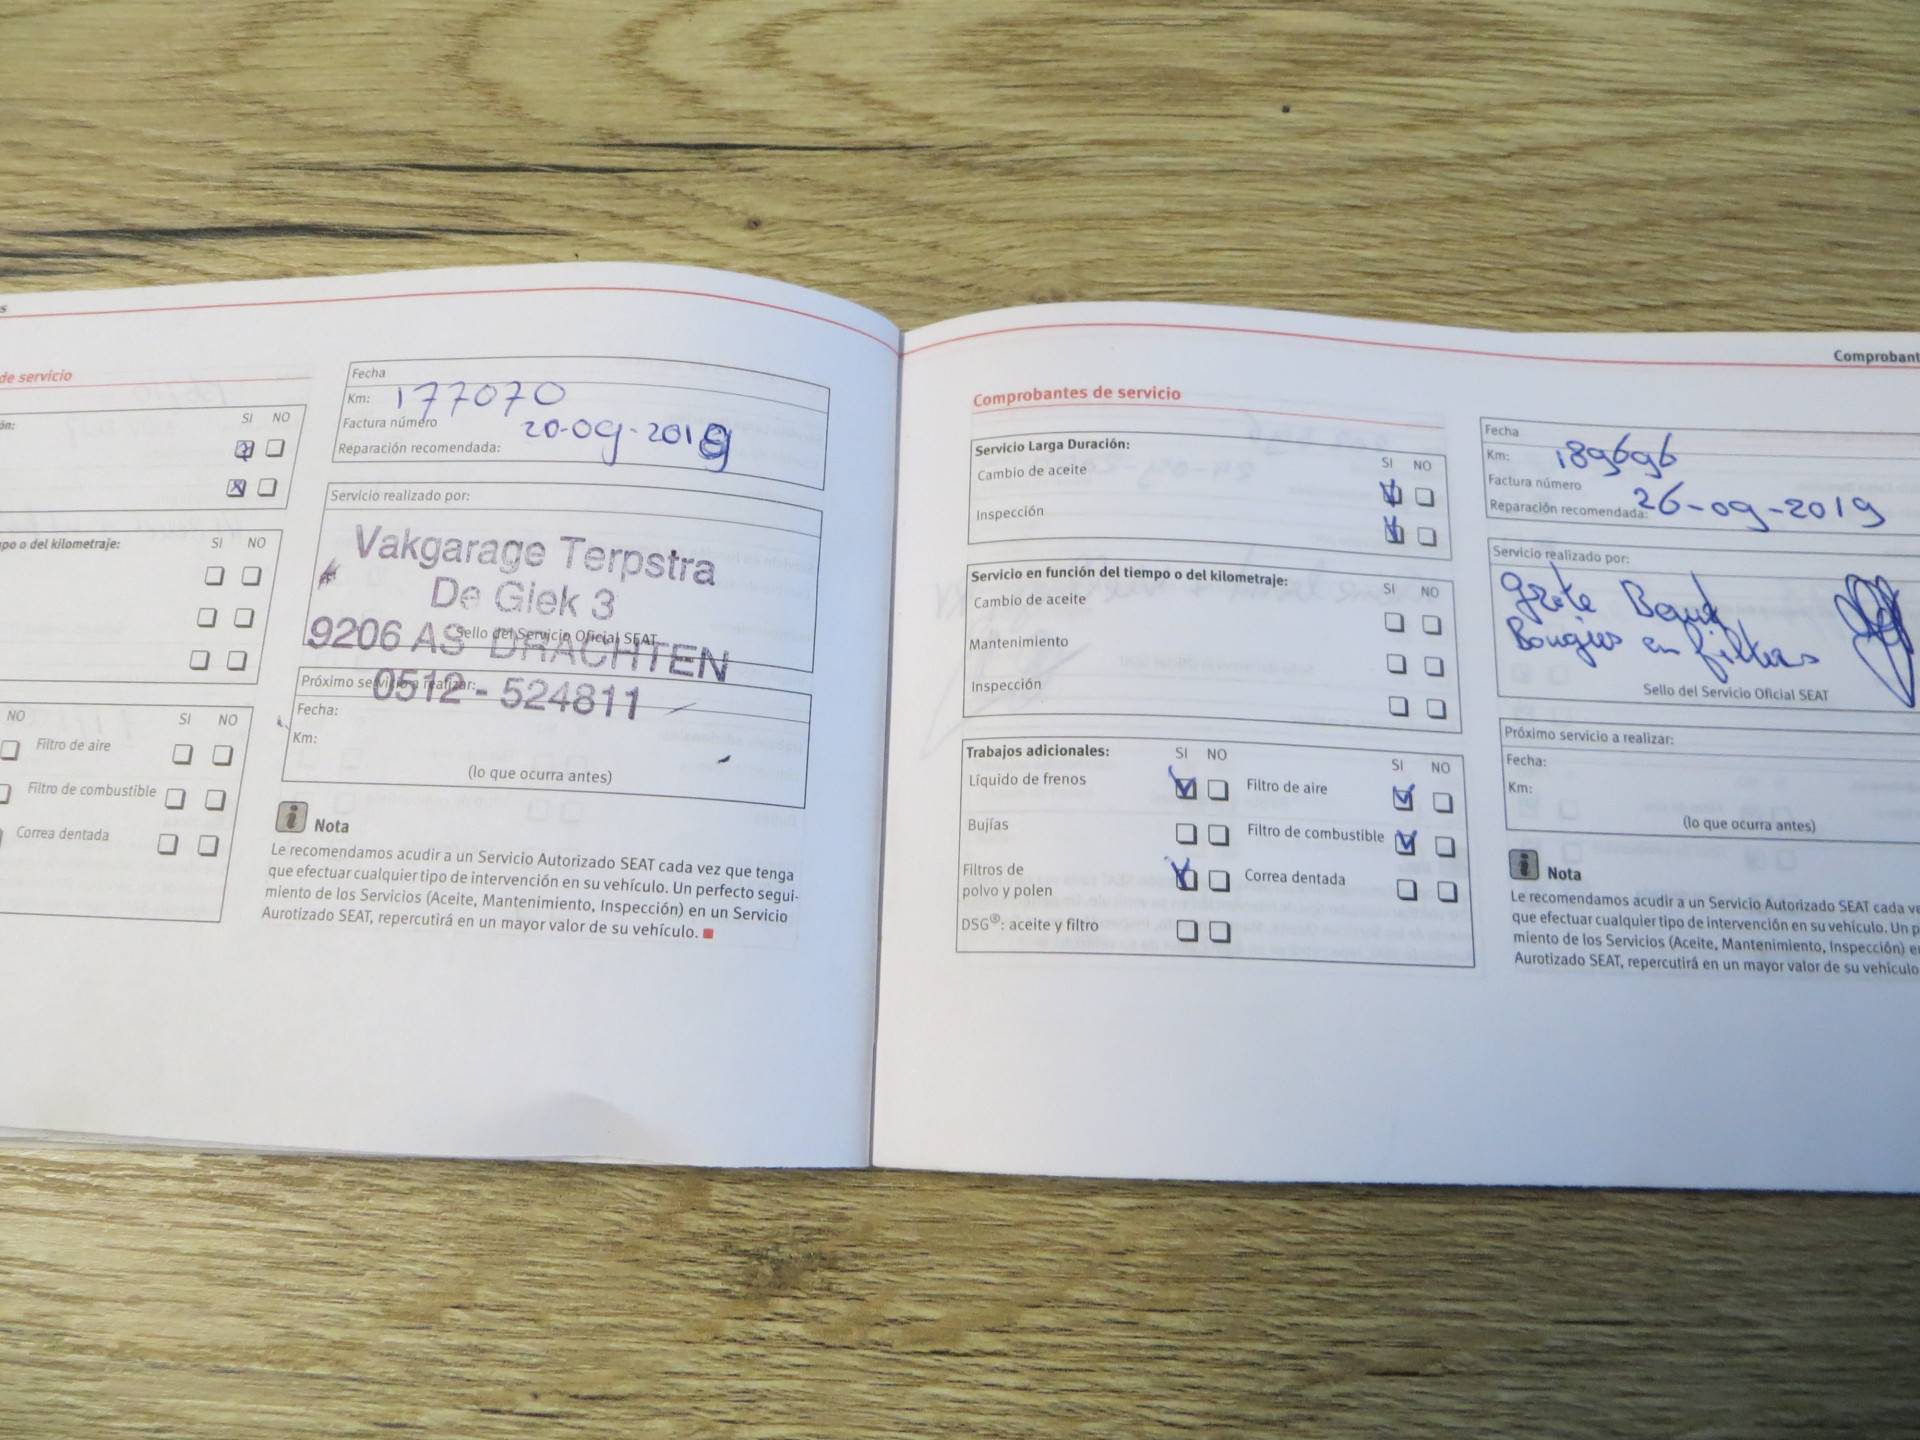 s
de servicio
ón:
SI NO
po o del kilometraje:
SI NO
NO SI NO
Filtro de aire
Filtro de combustible
Correa dentada
Fecha
Km: 177070
Factura número
20-09-2019
Reparación recomendada:
Servicio realizado por:
Vakgarage Terpstra
De Giek 3
9206 AS DRACHTEN
Sello del Servicio Oficial SEAT
0512 - 524811
Próximo servicio a realizar:
Fecha:
Km:
(lo que ocurra antes)
i Nota
Le recomendamos acudir a un Servicio Autorizado SEAT cada vez que tenga
que efectuar cualquier tipo de intervención en su vehículo. Un perfecto segui-
miento de los Servicios (Aceite, Mantenimiento, Inspección) en un Servicio
Aurotizado SEAT, repercutirá en un mayor valor de su vehículo.
Comprobant
Comprobantes de servicio
Servicio Larga Duración:
SI NO
Cambio de aceite
Inspección
Servicio en función del tiempo o del kilometraje:
SI NO
Cambio de aceite
Mantenimiento
Inspección
Trabajos adicionales:
SI NO SI NO
Líquido de frenos
Filtro de aire
Bujías
Filtro de combustible
Filtros de
polvo y polen
Correa dentada
DSG®: aceite y filtro
Fecha
Km: 189696
Factura número
26-09-2019
Reparación recomendada:
Servicio realizado por:
grote Beurt
Bougies en filters
Sello del Servicio Oficial SEAT
Próximo servicio a realizar:
Fecha:
Km:
(lo que ocurra antes)
i Nota
Le recomendamos acudir a un Servicio Autorizado SEAT cada ve
que efectuar cualquier tipo de intervención en su vehículo. Un p
miento de los Servicios (Aceite, Mantenimiento, Inspección) e
Aurotizado SEAT, repercutirá en un mayor valor de su vehículo